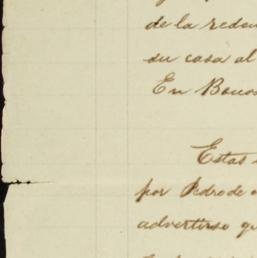 de la reden
su casa al
En Bonos
Estas
por Pedro de
advertirse qu